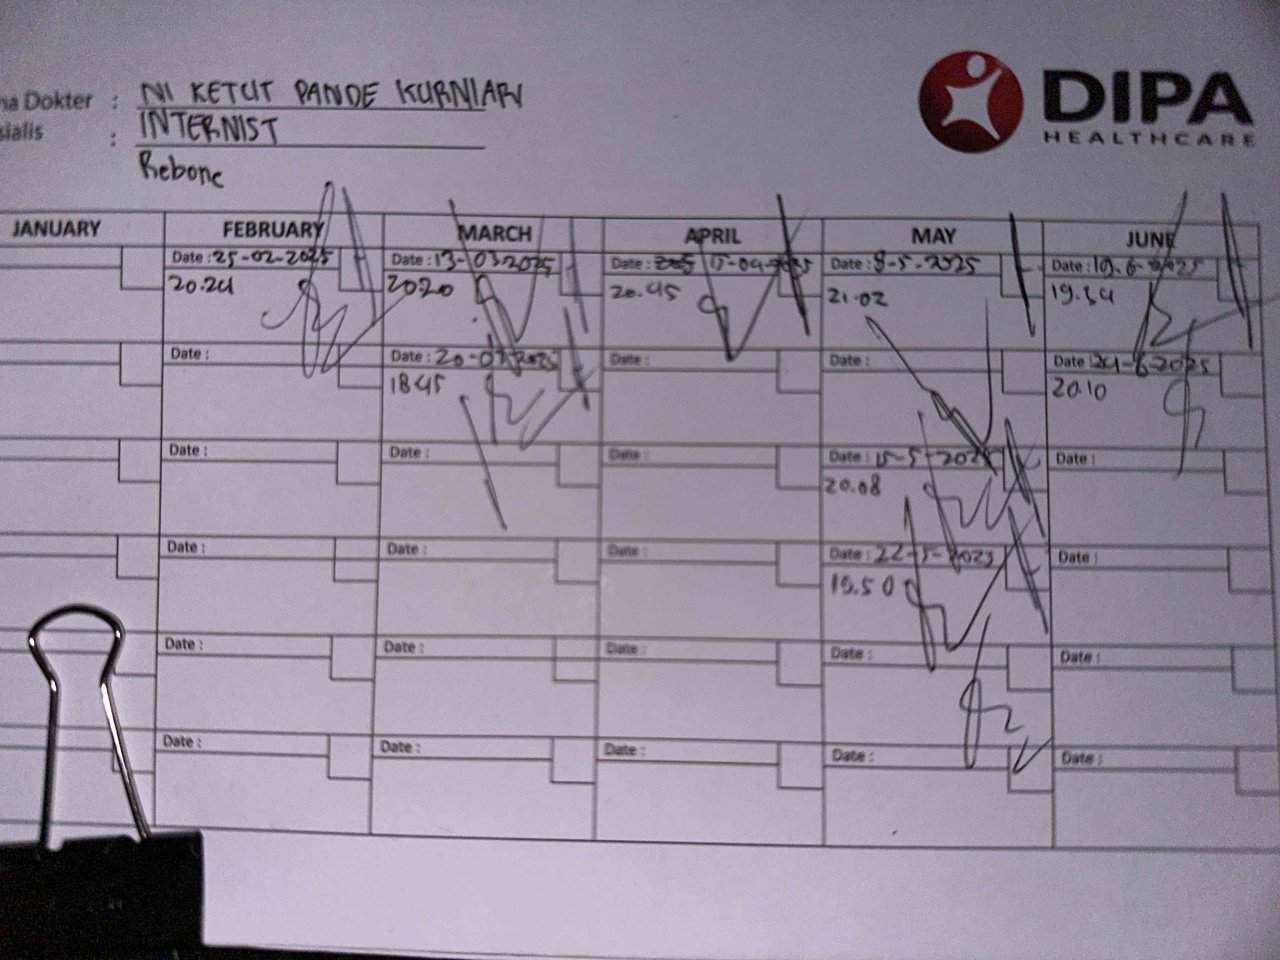 DIPA
HEALTHCARE
na Dokter : NI KETUT PANDE KURNIARI
sialis : INTERNIST
Rebone
JANUARY FEBRUARY MARCH APRIL MAY JUNE
Date : 25-02-2025 Date : 13-03-2025 Date : 15-04-2025 Date : 8-5-2025 Date : 19-6-2025
20.24 2020 20.45 21.02 19.34
Date : Date : 20-03-2025 Date : Date : Date : 24-6-2025
1845 20.10
Date : Date : Date : Date : 15-5-2025 Date :
20.08
Date : Date : Date : Date : 22-5-2025 Date :
19.50
Date : Date : Date : Date : Date :
Date : Date : Date : Date : Date :